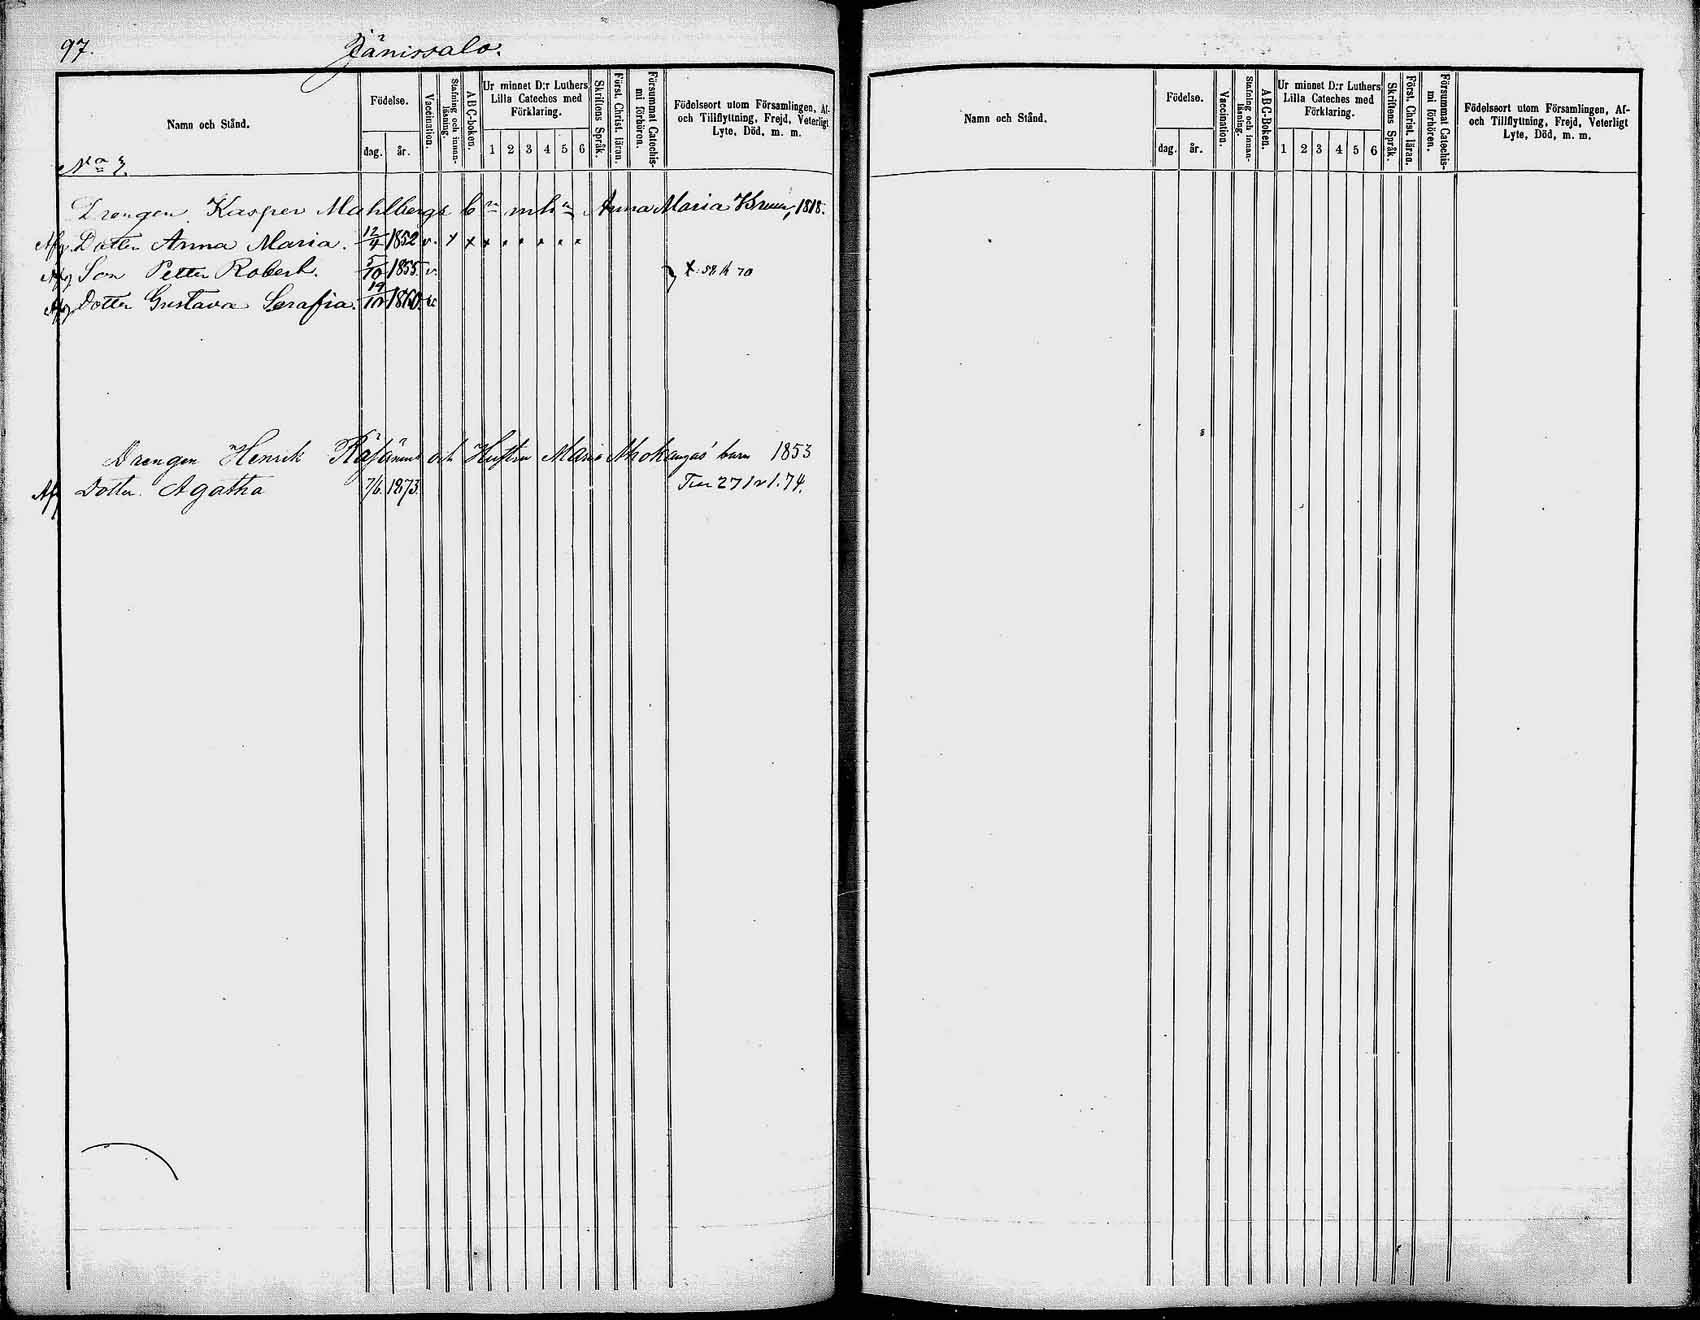 97. Jänissalo.
Namn och Stånd.
Födelse.
dag. år.
Vaccination.
Stafning och innan-läsning.
ABC-boken.
Ur minnet D:r Luthers
Lilla Cateches med
Förklaring.
1 2 3 4 5 6
Skriftens Språk.
Först. Christ. läran.
Försummat Catechis-
mi förhören.
Födelseort utom Församlingen, Af-
och Tillflyttning, Frejd, Veterligt
Lyte, Död, m. m.
Drengen Kasper Mahlbergs bn m hn Anna Maria 1818.
Afg Dotter Anna Maria. 12/4 1852 v. x x x
Afg Son Petter Robert. 5/10 1855 v.
Afg Dotter Gustava Serafia. 19/10 1860. v.
Drengen Henrik Räsänens och Hustru Maria barn 1853
Afg Dotter Agatha 7/6. 1873.
Namn och Stånd.
Födelse.
dag. år.
Vaccination.
Stafning och innan-läsning.
ABC-Boken.
Ur minnet D:r Luthers
Lilla Cateches med
Förklaring.
1 2 3 4 5 6
Skriftens Språk.
Först. Christ. läran.
Försummat Catechis-
mi förhören.
Födelseort utom Församlingen, Af-
och Tillflyttning, Frejd, Veterligt
Lyte, Död, m. m.